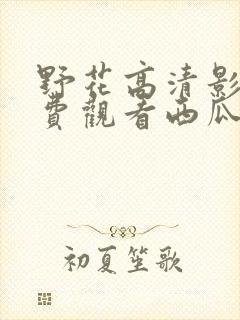 野花高清影
費觀看西瓜
初夏笙歌